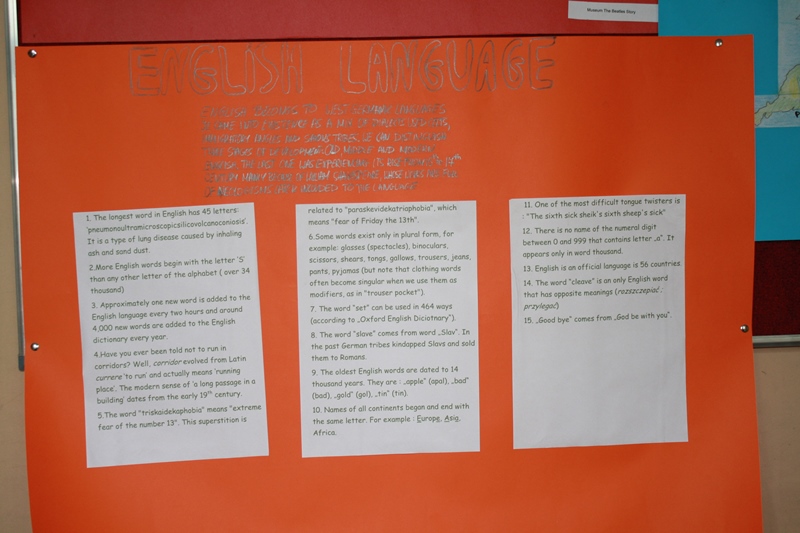 Museum The Beatles Story
ENGLISH LANGUAGE
ENGLISH BELONGS TO WEST GERMANIC LANGUAGES
IT CAME INTO EXISTENCE AS A MIX OF DIALECTS
ANGLES AND SAXONS TRIBES. WE CAN DISTINGUISH
STAGES OF DEVELOPMENT: OLD MIDDLE AND MODERN
ENGLISH. THE LAST ONE WAS EXPERIENCING ITS 17th
LANGUAGE
1. The longest word in English has 45 letters:
'pneumonoultramicroscopicsilicovolcanoconiosis'.
It is a type of lung disease caused by inhaling
ash and sand dust.
2.More English words begin with the letter 'S'
than any other letter of the alphabet ( over 34
thousand)
3. Approximately one new word is added to the
English language every two hours and around
4,000 new words are added to the English
dictionary every year.
4.Have you ever been told not to run in
corridors? Well, corridor evolved from Latin
currere 'to run' and actually means 'running
place'. The modern sense of 'a long passage in a
building' dates from the early 19th century.
5.The word "triskaidekaphobia" means "extreme
fear of the number 13". This superstition is
related to "paraskevidekatriaphobia", which
means "fear of Friday the 13th".
6.Some words exist only in plural form, for
example: glasses (spectacles), binoculars,
scissors, shears, tongs, gallows, trousers, jeans,
pants, pyjamas (but note that clothing words
often become singular when we use them as
modifiers, as in "trouser pocket").
7. The word "set" can be used in 464 ways
(according to „Oxford English Diciotnary").
8. The word "slave" comes from word „Slav". In
the past German tribes kindapped Slavs and sold
them to Romans.
9. The oldest English words are dated to 14
thousand years. They are : „apple" (apal), „bad"
(bad), „gold" (gol), „tin" (tin).
10. Names of all continents began and end with
the same letter. For example : Europe, Asia,
Africa.
11. One of the most difficult tongue twisters is
: "The sixth sick sheik's sixth sheep's sick"
12. There is no name of the numeral digit
between 0 and 999 that contains letter „a". It
appears only in word thousand.
13. English is an official language is 56 countries
14. The word "cleave" is an only English word
that has opposite meanings (rozszczepiać :
przylegać)
15. „Good bye" comes from „God be with you".